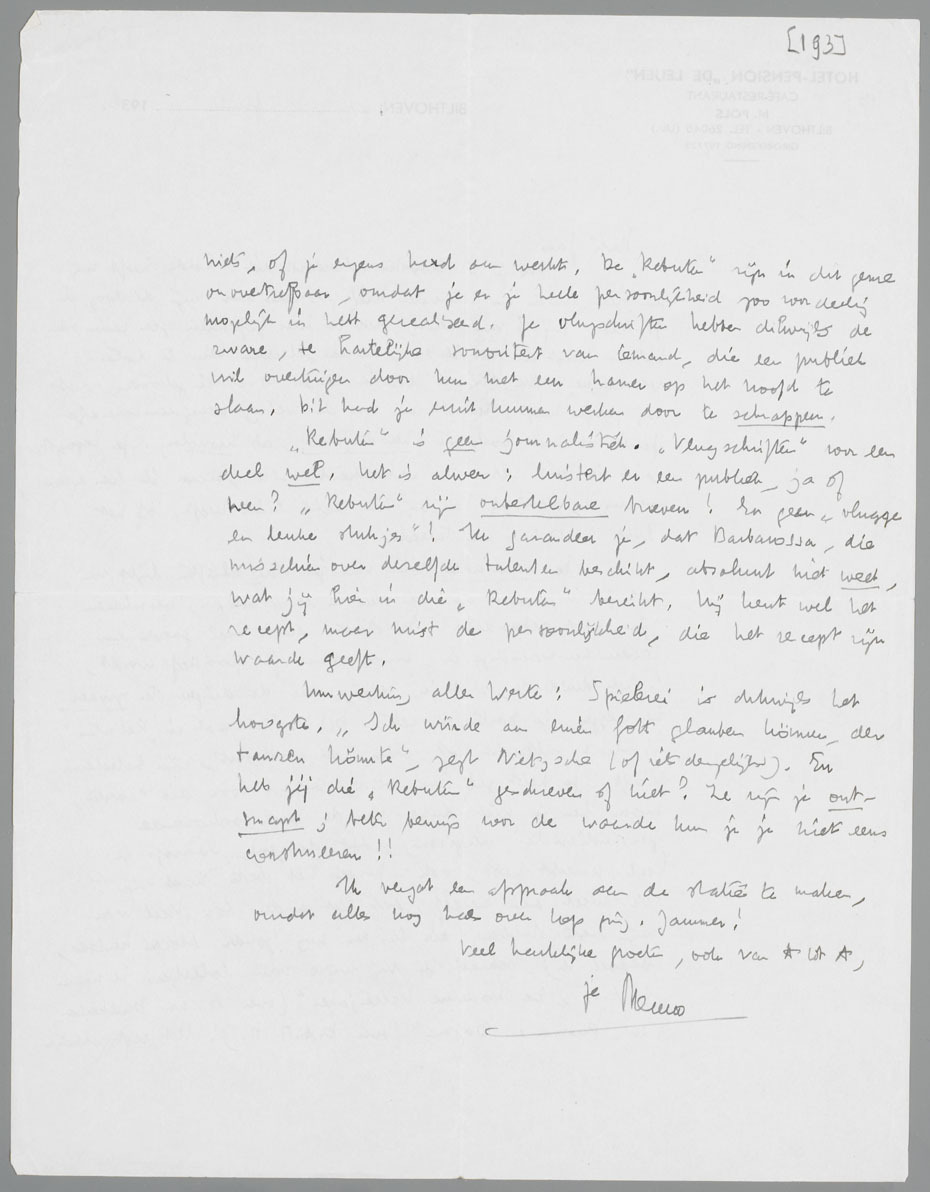 [193]
niets, of je ergens hard aan werkt. De „Rebuten” zijn in dit genre
onovertrefbaar, omdat je er je heele persoonlijkheid zoo voordeelig
mogelijk in hebt gerealiseerd. Je vlugschriften hebben dikwijls de
zware, te hartelijke van iemand, die een publiek
wil overtuigen door hun met een hamer op het hoofd te
slaan. Dit had je eruit kunnen werken door te schrappen.
„Rebuten” is geen journalistiek. „Vlugschriften” voor een
deel wel. Het is alweer: luistert er een publiek, ja of
neen? „Rebuten” zijn onbestelbare brieven! En geen „vlugge
en leuke stukjes”! Ik garandeer je, dat Barbarossa, die
misschien over dezelfde talenten beschikt, absoluut niet weet,
wat jij hier in die „Rebuten” bereikt. Hij kent wel het
recept, maar mist de persoonlijkheid, die het recept zijn
waarde geeft.
Umwertung aller Werte: Spielerei is dikwijls het
hoogste. „Ich würde an einen Gott glauben können, der
tanzen könnte”, zegt Nietzsche (of iets dergelijks). En
heb jij die „Rebuten” geschreven of niet? Ze zijn je ont-
snapt; beter bewijs voor de waarde kun je je niet eens
construeeren!!
Ik vergat een afspraak aan de statie te maken,
omdat alles nog hals over kop ging. Jammer!
Veel hartelijke groeten, ook van A tot A,
je Menno